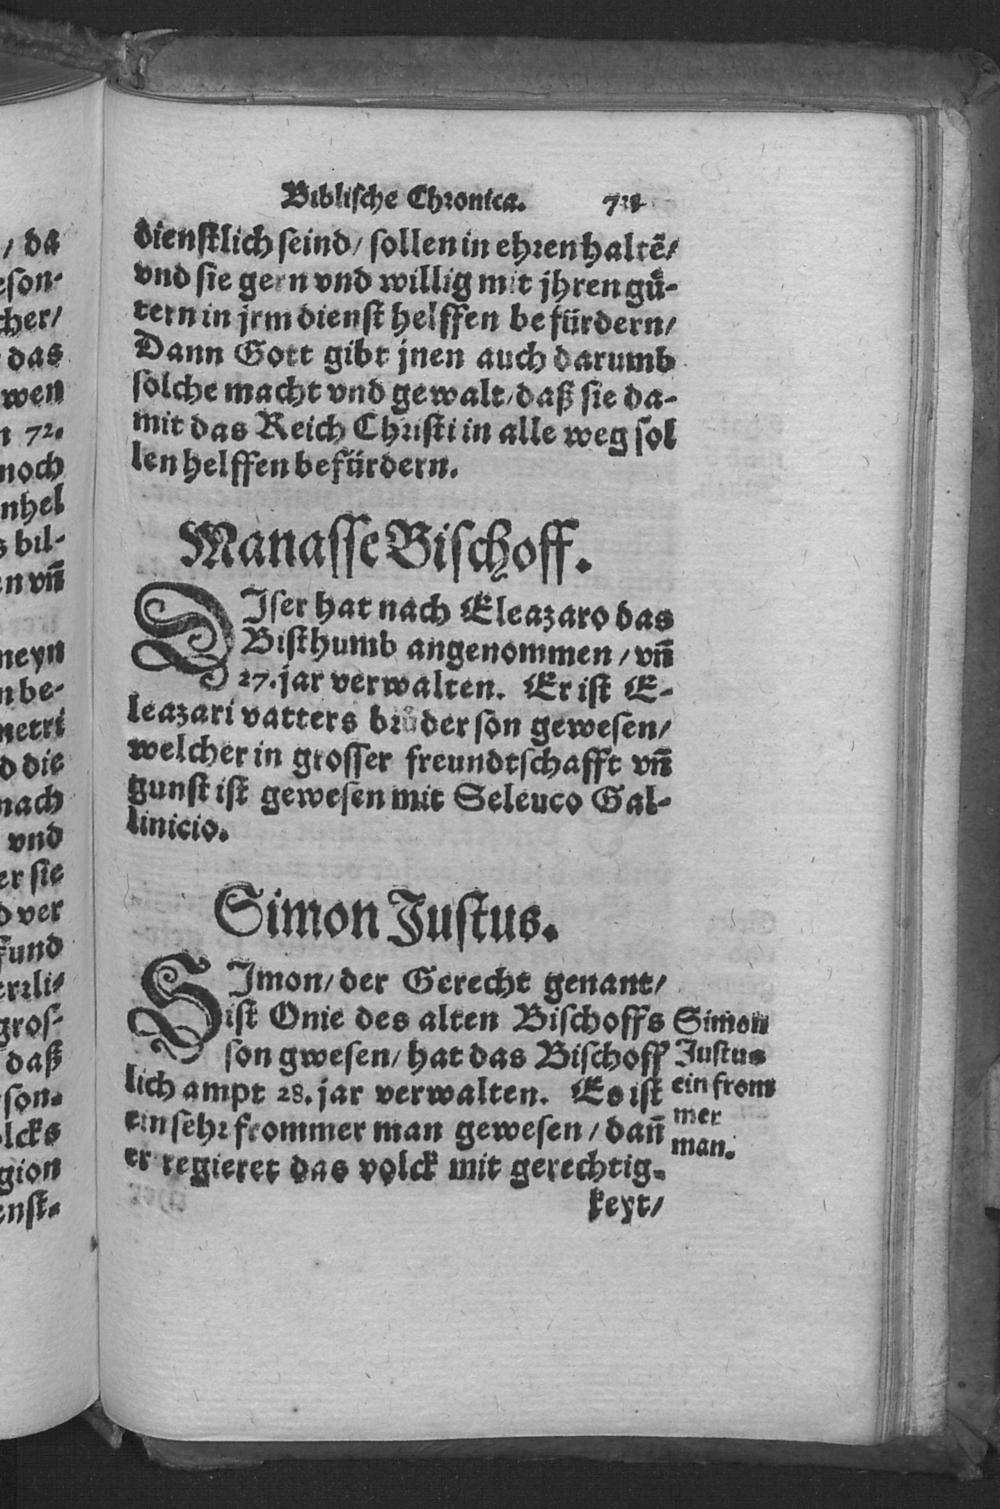 Biblische Chronica.
dienstlich seind/ sollen in ehren haltẽ/
vnd sie gern vnd willig mit jhren guͤ-
tern in jrm dienst helffen befürdern/
Dann Gott gibt jnen auch darumb
solche macht vnd gewalt/ daß sie da-
mit das Reich Christi in alle weg sol
len helffen befürdern.
Manasse Bischoff.
DIser hat nach Eleazaro das
Bisthumb angenommen/ vñ
27. jar verwalten. Er ist E-
leazari vatters bruͦder son gewesen/
welcher in grosser freundtschafft vñ
gunst ist gewesen mit Seleuco Gal-
linicio.
Simon Justus.
SImon/ der Gerecht genant/
ist Onie des alten Bischoffs
son gwesen/ hat das Bischoff
lich ampt 28. jar verwalten. Es ist
ein sehr frommer man gewesen/ dañ
er regieret das volck mit gerechtig-
keyt/
Simon
Justus
ein from
mer
man.
/ da
eson-
cher/
das
wen
72.
noch
nhel
s bil-
en vñ
meyn
n be-
metri
d die
nach
vnd
er sie
d ver
fund
erzli-
gros-
daß
son-
olcks
gion
enst-